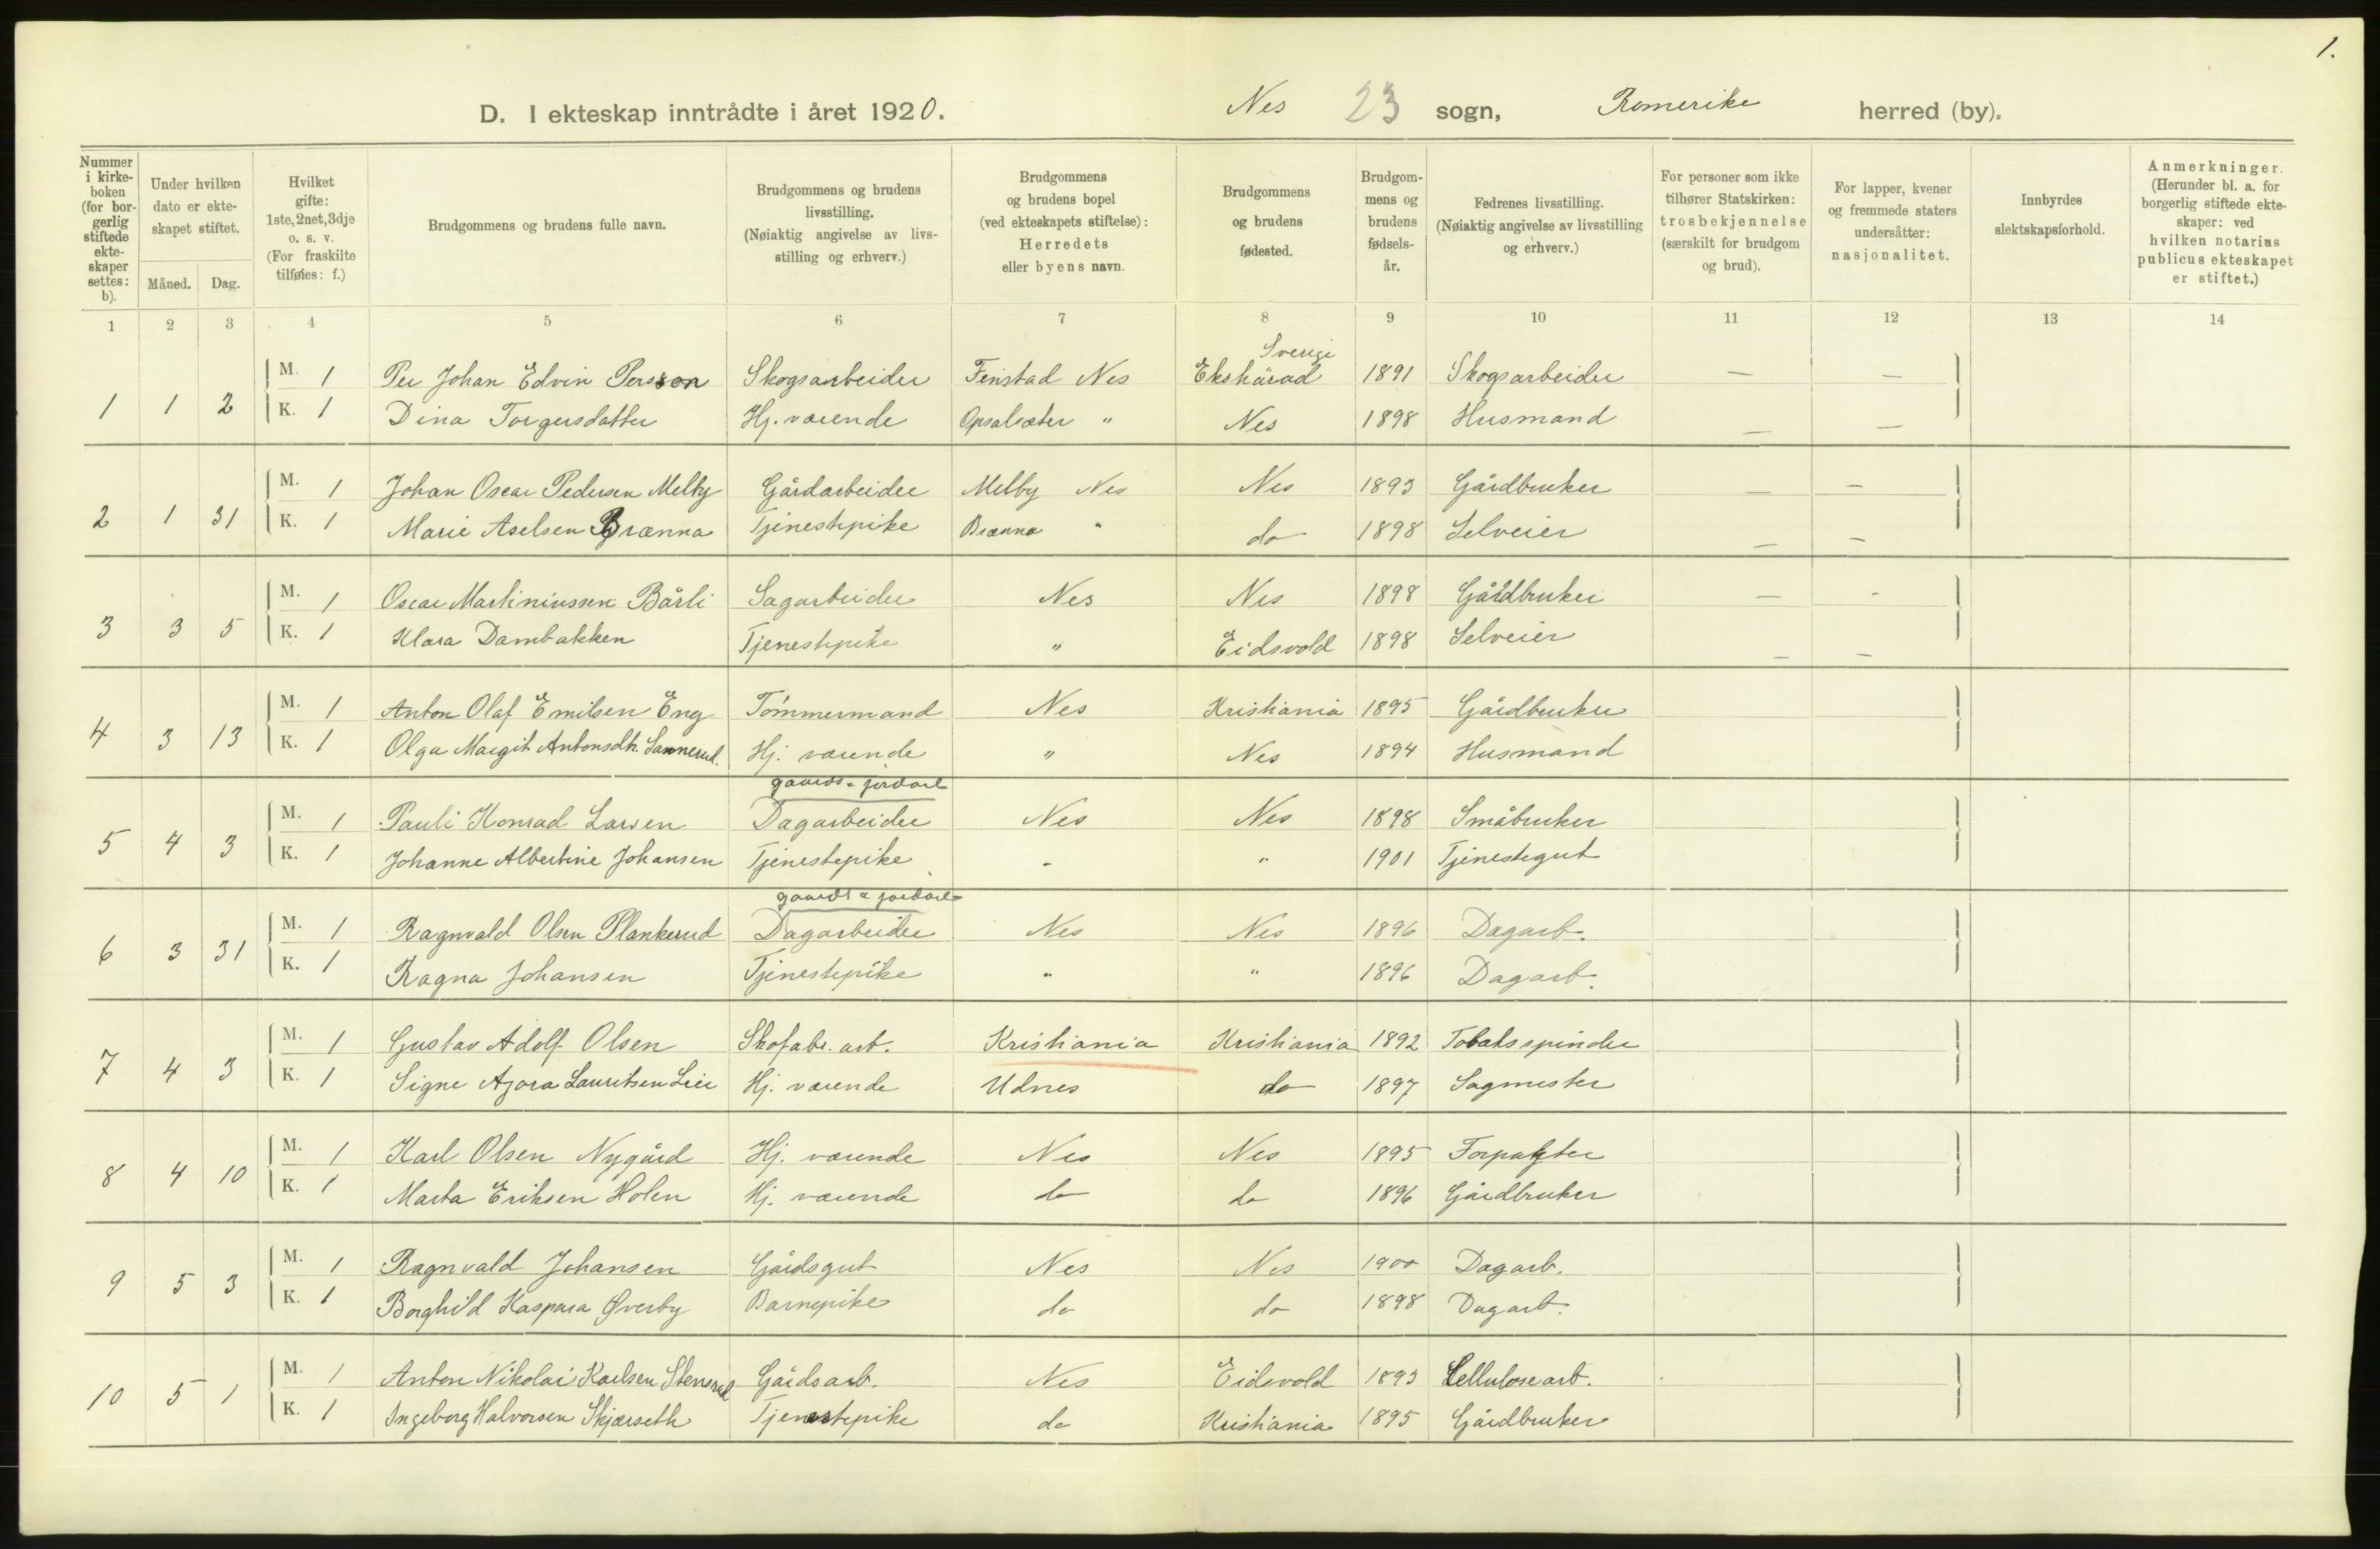 1.
D. I ekteskap inntrådte i året 1920. Nes 23 sogn, Romerike herred (by).
Nummer i kirke-boken (for bor-gerlig stiftede ekte-skaper settes: b).
Under hvilken dato er ekte-skapet stiftet.
Måned. Dag.
Hvilket gifte: 1ste, 2net, 3dje o. s. v. (For fraskilte tilføies: f.)
Brudgommens og brudens fulle navn.
Brudgommens og brudens livsstilling. (Nøiaktig angivelse av livs-stilling og erhverv.)
Brudgommens og brudens bopel (ved ekteskapets stiftelse): Herredets eller byens navn.
Brudgommens og brudens fødested.
Brudgom-mens og brudens fødsels-år.
Fedrenes livsstilling. (Nøiaktig angivelse av livsstilling og erhverv.)
For personer som ikke tilhører Statskirken: trosbekjennelse (særskilt for brudgom og brud).
For lapper, kvener og fremmede staters undersåtter: nasjonalitet.
Innbyrdes slektskapsforhold.
Anmerkninger. (Herunder bl. a. for borgerlig stiftede ekte-skaper: ved hvilken notarius publicus ekteskapet er stiftet.)
1 2 3 4 5 6 7 8 9 10 11 12 13 14
Sverige
M. 1 Per Johan Edvin Persson Skogsarbeider Finstad Nes Ekshärad 1891 Skogsarbeider — —
1 1 2 K. 1 Dina Torgersdatter Hj. værende Opsalsæter " Nes 1898 Husmand — —
M. 1 Johan Oscar Pedersen Melby Gårdarbeider Melby Nes Nes 1893 Gårdbruker — —
2 1 31 K. 1 Marie Aselsen Brænna Tjenestepike Brænna " do 1898 Selveier — —
M. 1 Oscar Martiniussen Bårli Sagarbeider Nes Nes 1898 Gårdbruker — -
3 3 5 K. 1 Klara Dambakken Tjenestepike " Eidsvold 1898 Selveier — —
M. 1 Anton Olaf Emilsen Eng Tømmermand Nes Kristiania 1895 Gårdbruker
4 3 13 K. 1 Olga Margit Antonsdtr. Sannerud. Hj. værende " Nes 1894 Husmand
gaards- & jordarb
M. 1 Pauli Konrad Larsen Dagarbeider Nes Nes 1898 Småbruker
5 4 3 K. 1 Johanne Albertine Johansen Tjenestepike " " 1901 Tjenestegut
gaards- & jordarb
M. 1 Ragnvald Olsen Plankerud Dagarbeider Nes Nes 1896 Dagarb.
6 3 31 K. 1 Ragna Johansen Tjenestepike " " 1896 Dagarb.
M. 1 Gustav Adolf Olsen Skofabr. arb. Kristiania Kristiania 1892 Tobaksspinder
7 4 3 K. 1 Signe Azora Lauritsen Lier Hj. værende Udnes do 1897 Sagmester
M. 1 Karl Olsen Nygård Hj. værende Nes Nes 1895 Forpagter
8 4 10 K. 1 Marta Eriksen Holen Hj. værende do do 1896 Gårdbruker
M. 1 Ragnvald Johansen Gårdsgut Nes Nes 1900 Dagarb.
9 5 3 K. 1 Borghild Kaspara Øverby Barnepike do do 1898 Dagarb.
M. 1 Anton Nikolai Karlsen Stensrud Gårdsarb. Nes Eidsvold 1893 Cellulosearb.
10 5 1 K. 1 Ingeborg Halvorsen Skjærseth Tjenestepike do Kristiania 1895 Gårdbruker